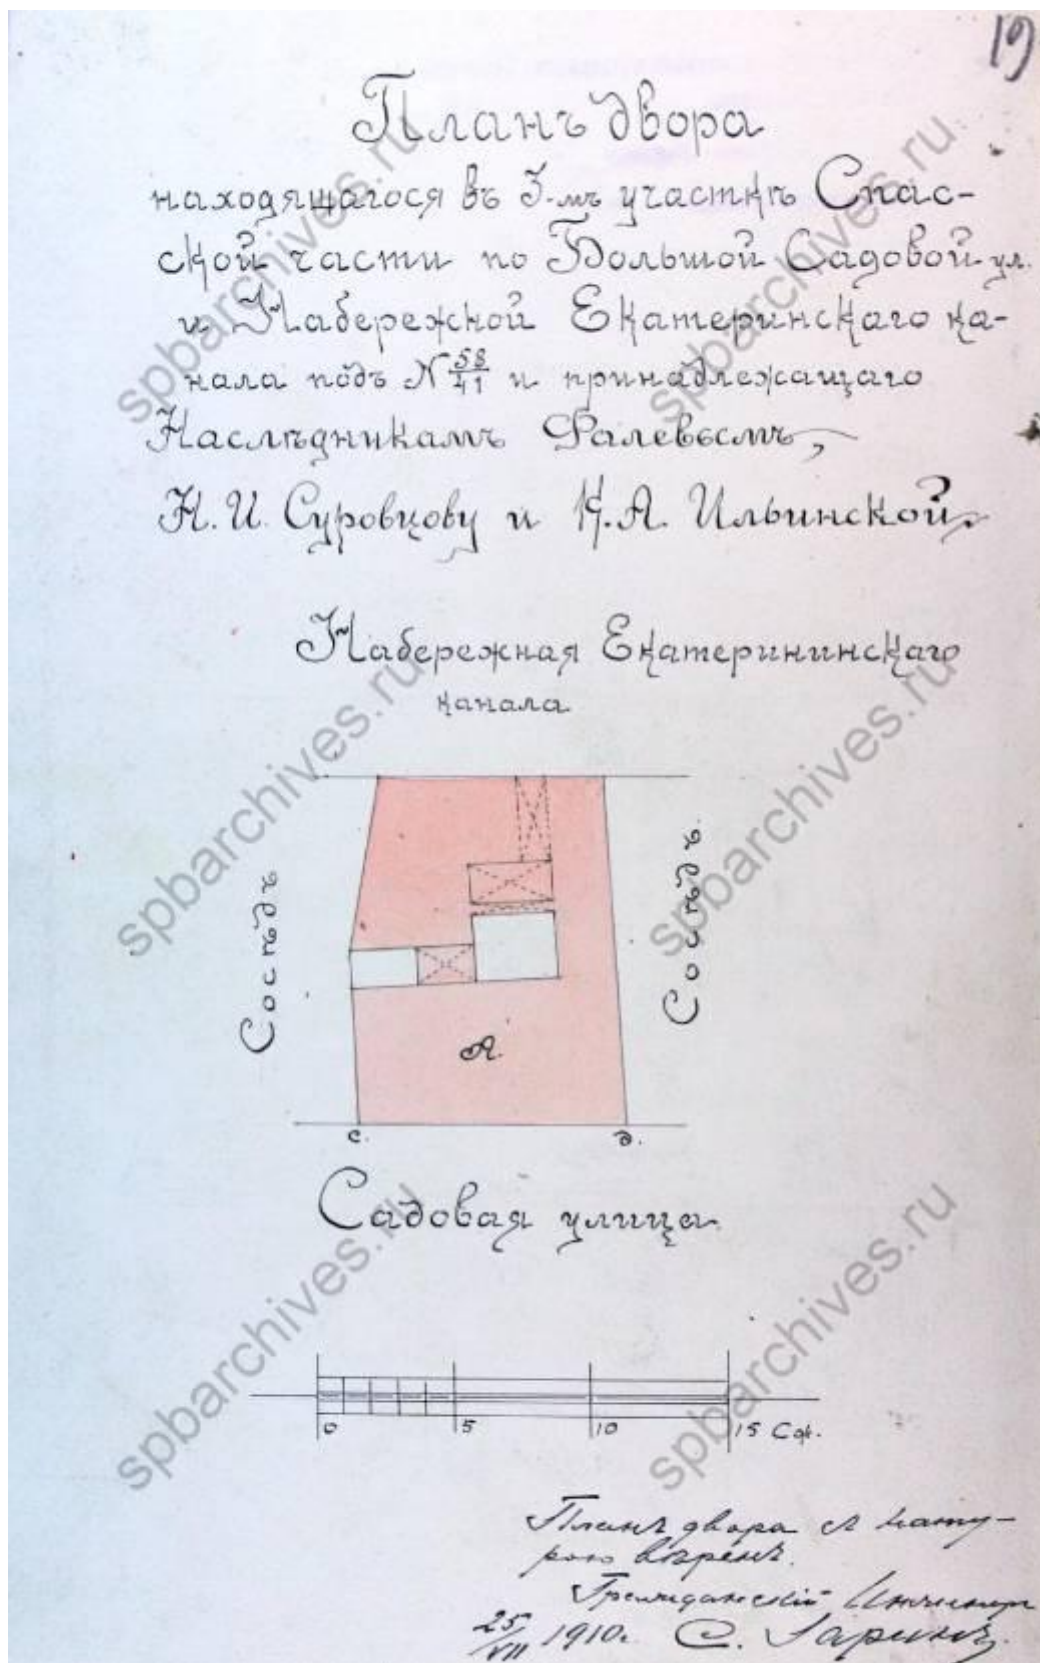 19
Планъ двора
находящагося въ 3-мъ участкѣ Спас-
ской части по Большой Садовой ул.
и Набережной Екатеринскаго ка-
нала подъ № 58/41 и принадлежащаго
Наслѣдникамъ Фалевымъ,
Н. И. Суровцову и К. А. Ильинской.
Набережная Екатерининскаго
канала
Сосѣдъ
Сосѣдъ.
А.
с.
д.
Садовая улица
0 5 10 15 Саж.
Планъ двора съ нату-
рою вѣренъ.
Гражданскій Инженеръ
25/VII 1910г. С.
spbarchives.ru
spbarchives.ru
spbarchives.ru
spbarchives.ru
spbarchives.ru
spbarchives.ru